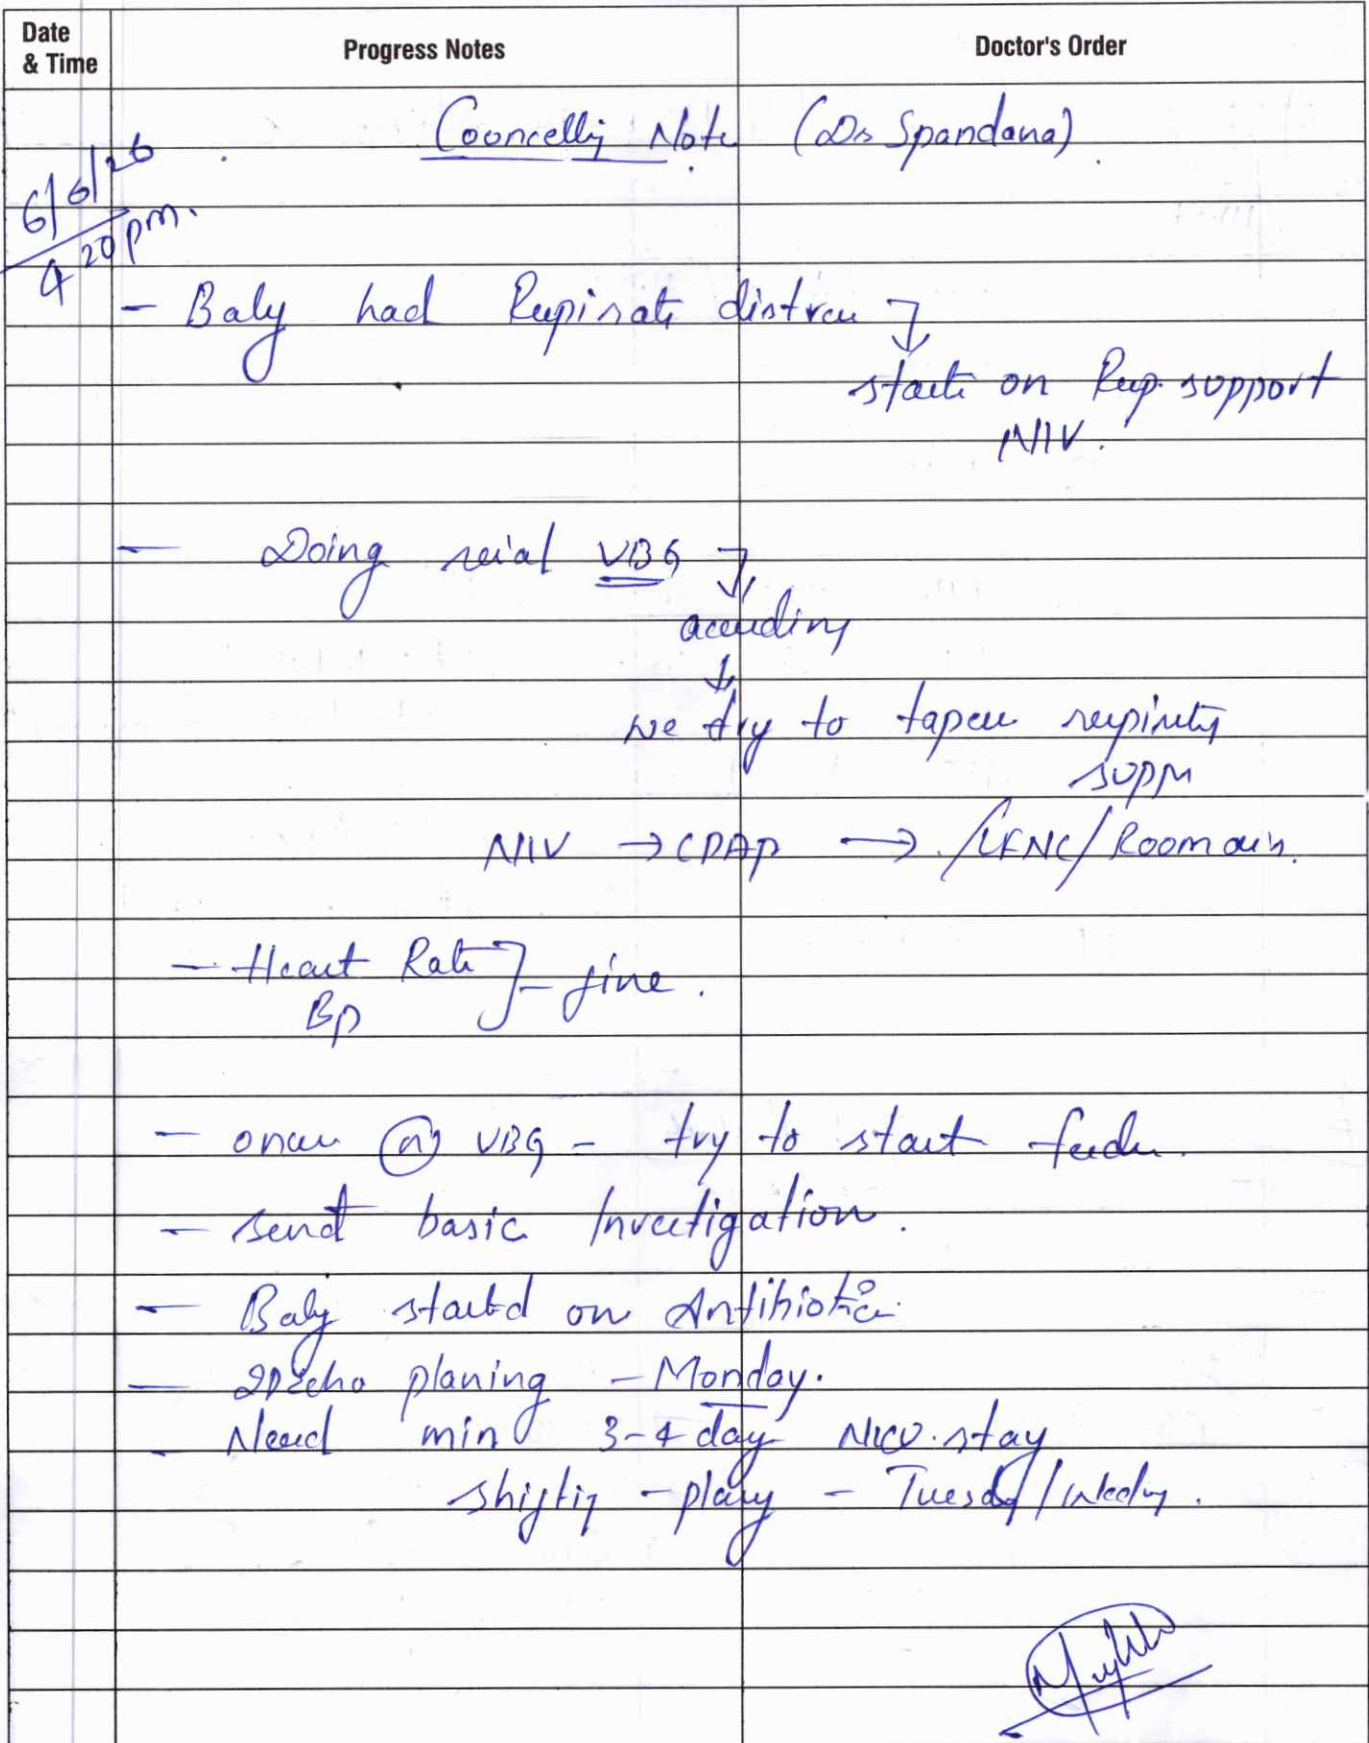 Date & Time Progress Notes Doctor's Order
Councelling Note (Dr Spandana)
6/6/26
4 20 pm.
- Baby had Respiratory distress
started on Resp. support
NIV.
- Doing serial VBG
according
we try to taper respiratory
support
NIV → CPAP → /LFNC/Room air.
- Heart Rate
BP - fine.
- once (n) VBG - try to start feeds.
- send basic Investigation.
- Baby started on Antibiotic
- 2D Echo planing - Monday.
- Need min 3-4 day NICU stay
shifting - planing - Tuesday/Wed.